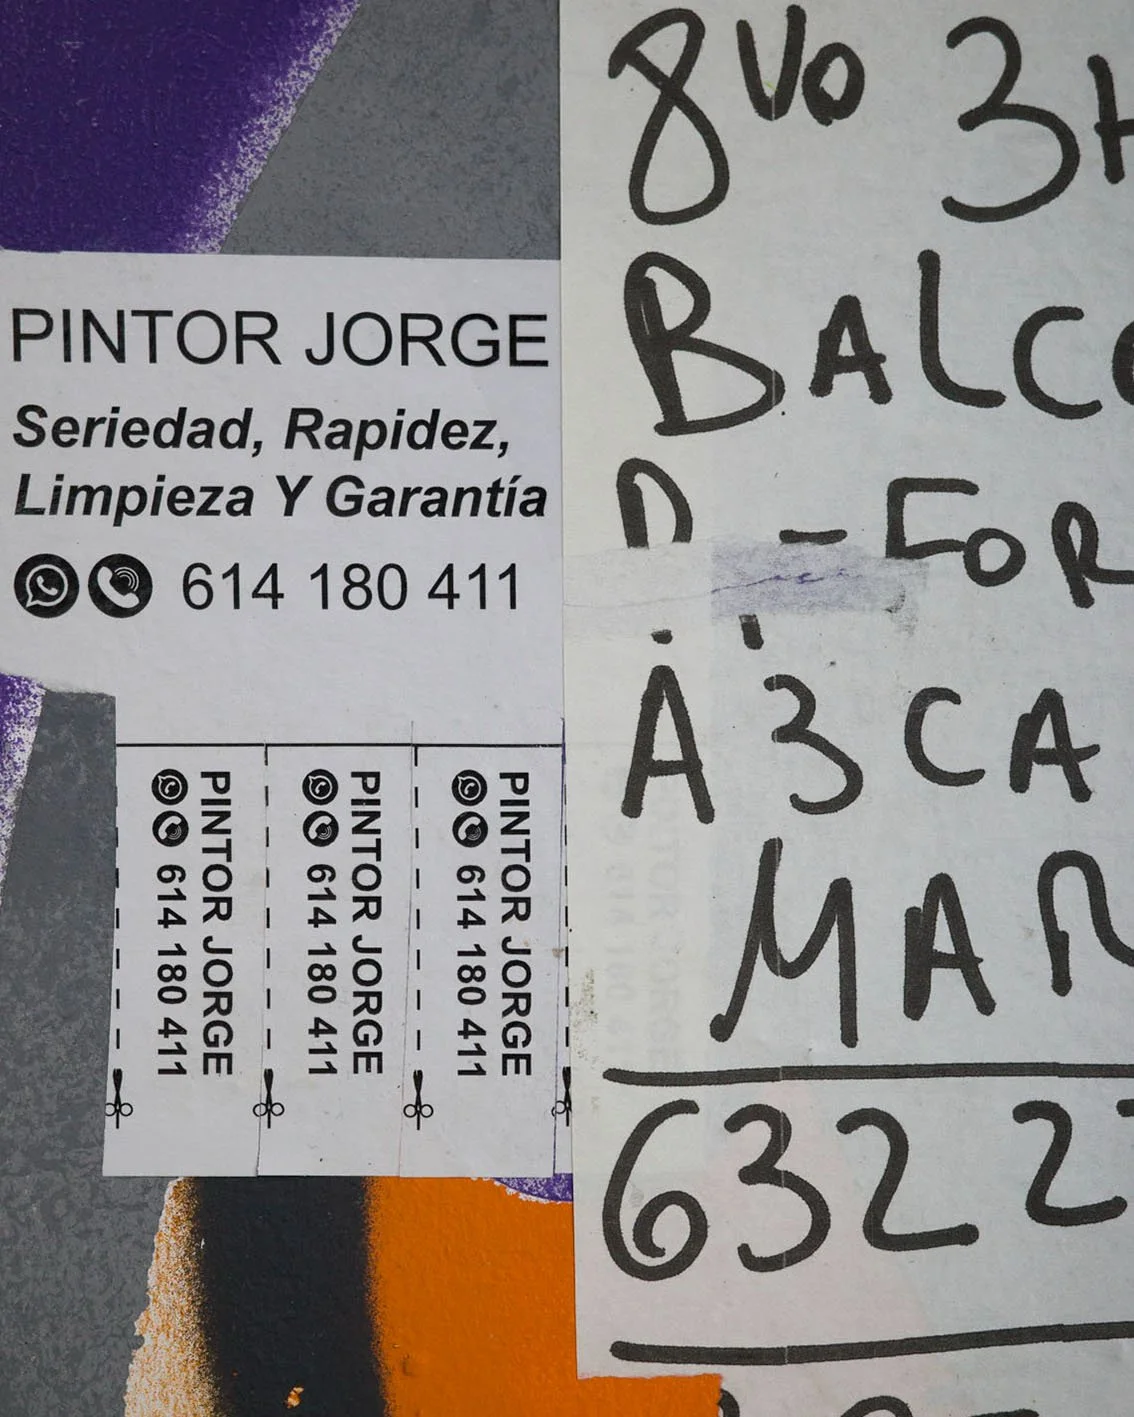 PINTOR JORGE
Seriedad, Rapidez,
Limpieza Y Garantía
614 180 411
PINTOR JORGE
614 180 411
PINTOR JORGE
614 180 411
PINTOR JORGE
614 180 411
8vo 3H
BALCO
- FOR
A 3 CA
MAR
632 2